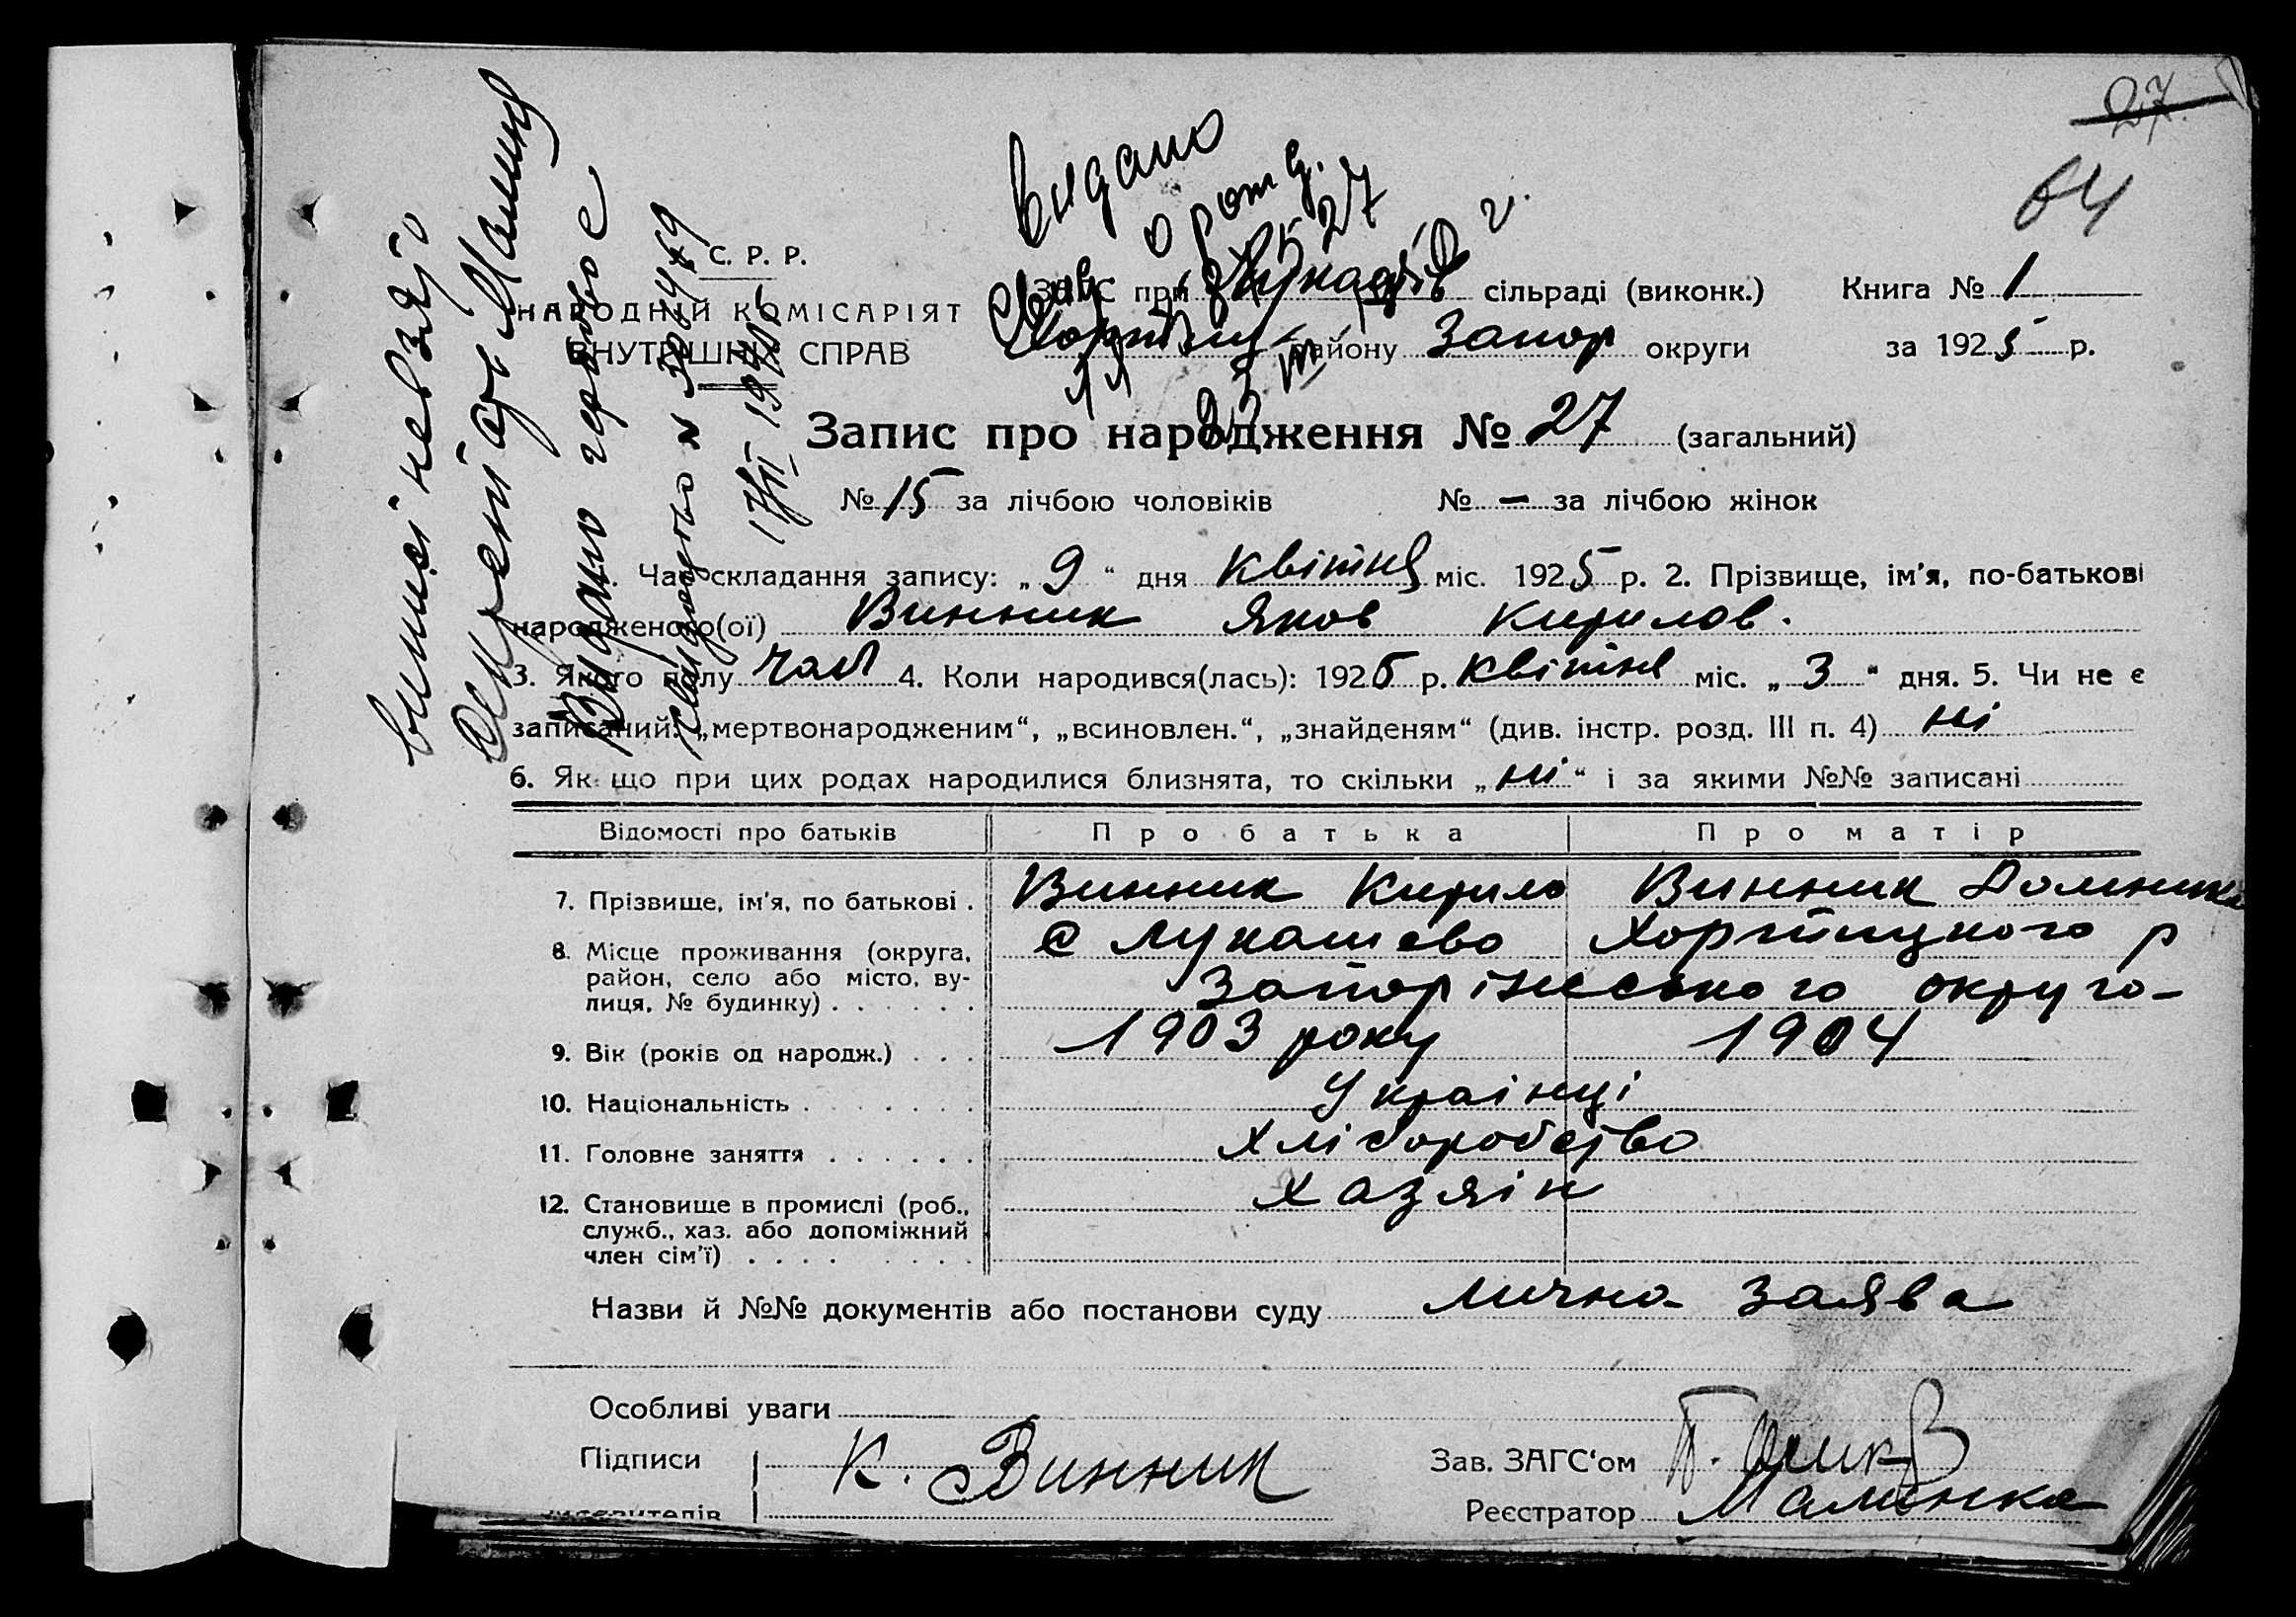 27.
64
Видано
С. Р. Р.
НАРОДНІЙ КОМІСАРІЯТ
ВНУТРІШНІХ СПРАВ
ЗАГС при сільраді (виконк.) Книга № 1
району Запор округи за 1925 р.
Запис про народження № 27 (загальний)
№ 15 за лічбою чоловіків № — за лічбою жінок
Час складання запису: „ 9 “ дня квітня міс. 1925 р. 2. Прізвище, ім'я, по-батькові
народженого(ої) Винник Яков Кирилов.
3. Якого полу чол 4. Коли народився(лась): 1925 р. квітня міс. „ 3 “ дня. 5. Чи не є
записаний: „мертвонародженим“, „всиновлен.“, „знайденям“ (див. інстр. розд. III п. 4) ні
6. Як що при цих родах народилися близнята, то скільки „ ні “ і за якими №№ записані
Відомості про батьків Про батька Про матір
7. Прізвище, ім'я, по батькові . Винник Кирило Винник Домника
8. Місце проживання (округа, район, село або місто, вулиця, № будинку) с Лукашево Хортицкого р
Запоріжського округо
9. Вік (років од народж.) 1903 року 1904
10. Національність Українці
11. Головне заняття Хліборобство
12. Становище в промислі (роб., Хазяін
служб., хаз. або допоміжний
член сім'ї)
Назви й №№ документів або постанови суду лична заява
Особливі уваги
Підписи К. Винник Зав. ЗАГС'ом
Реєстратор Малинка